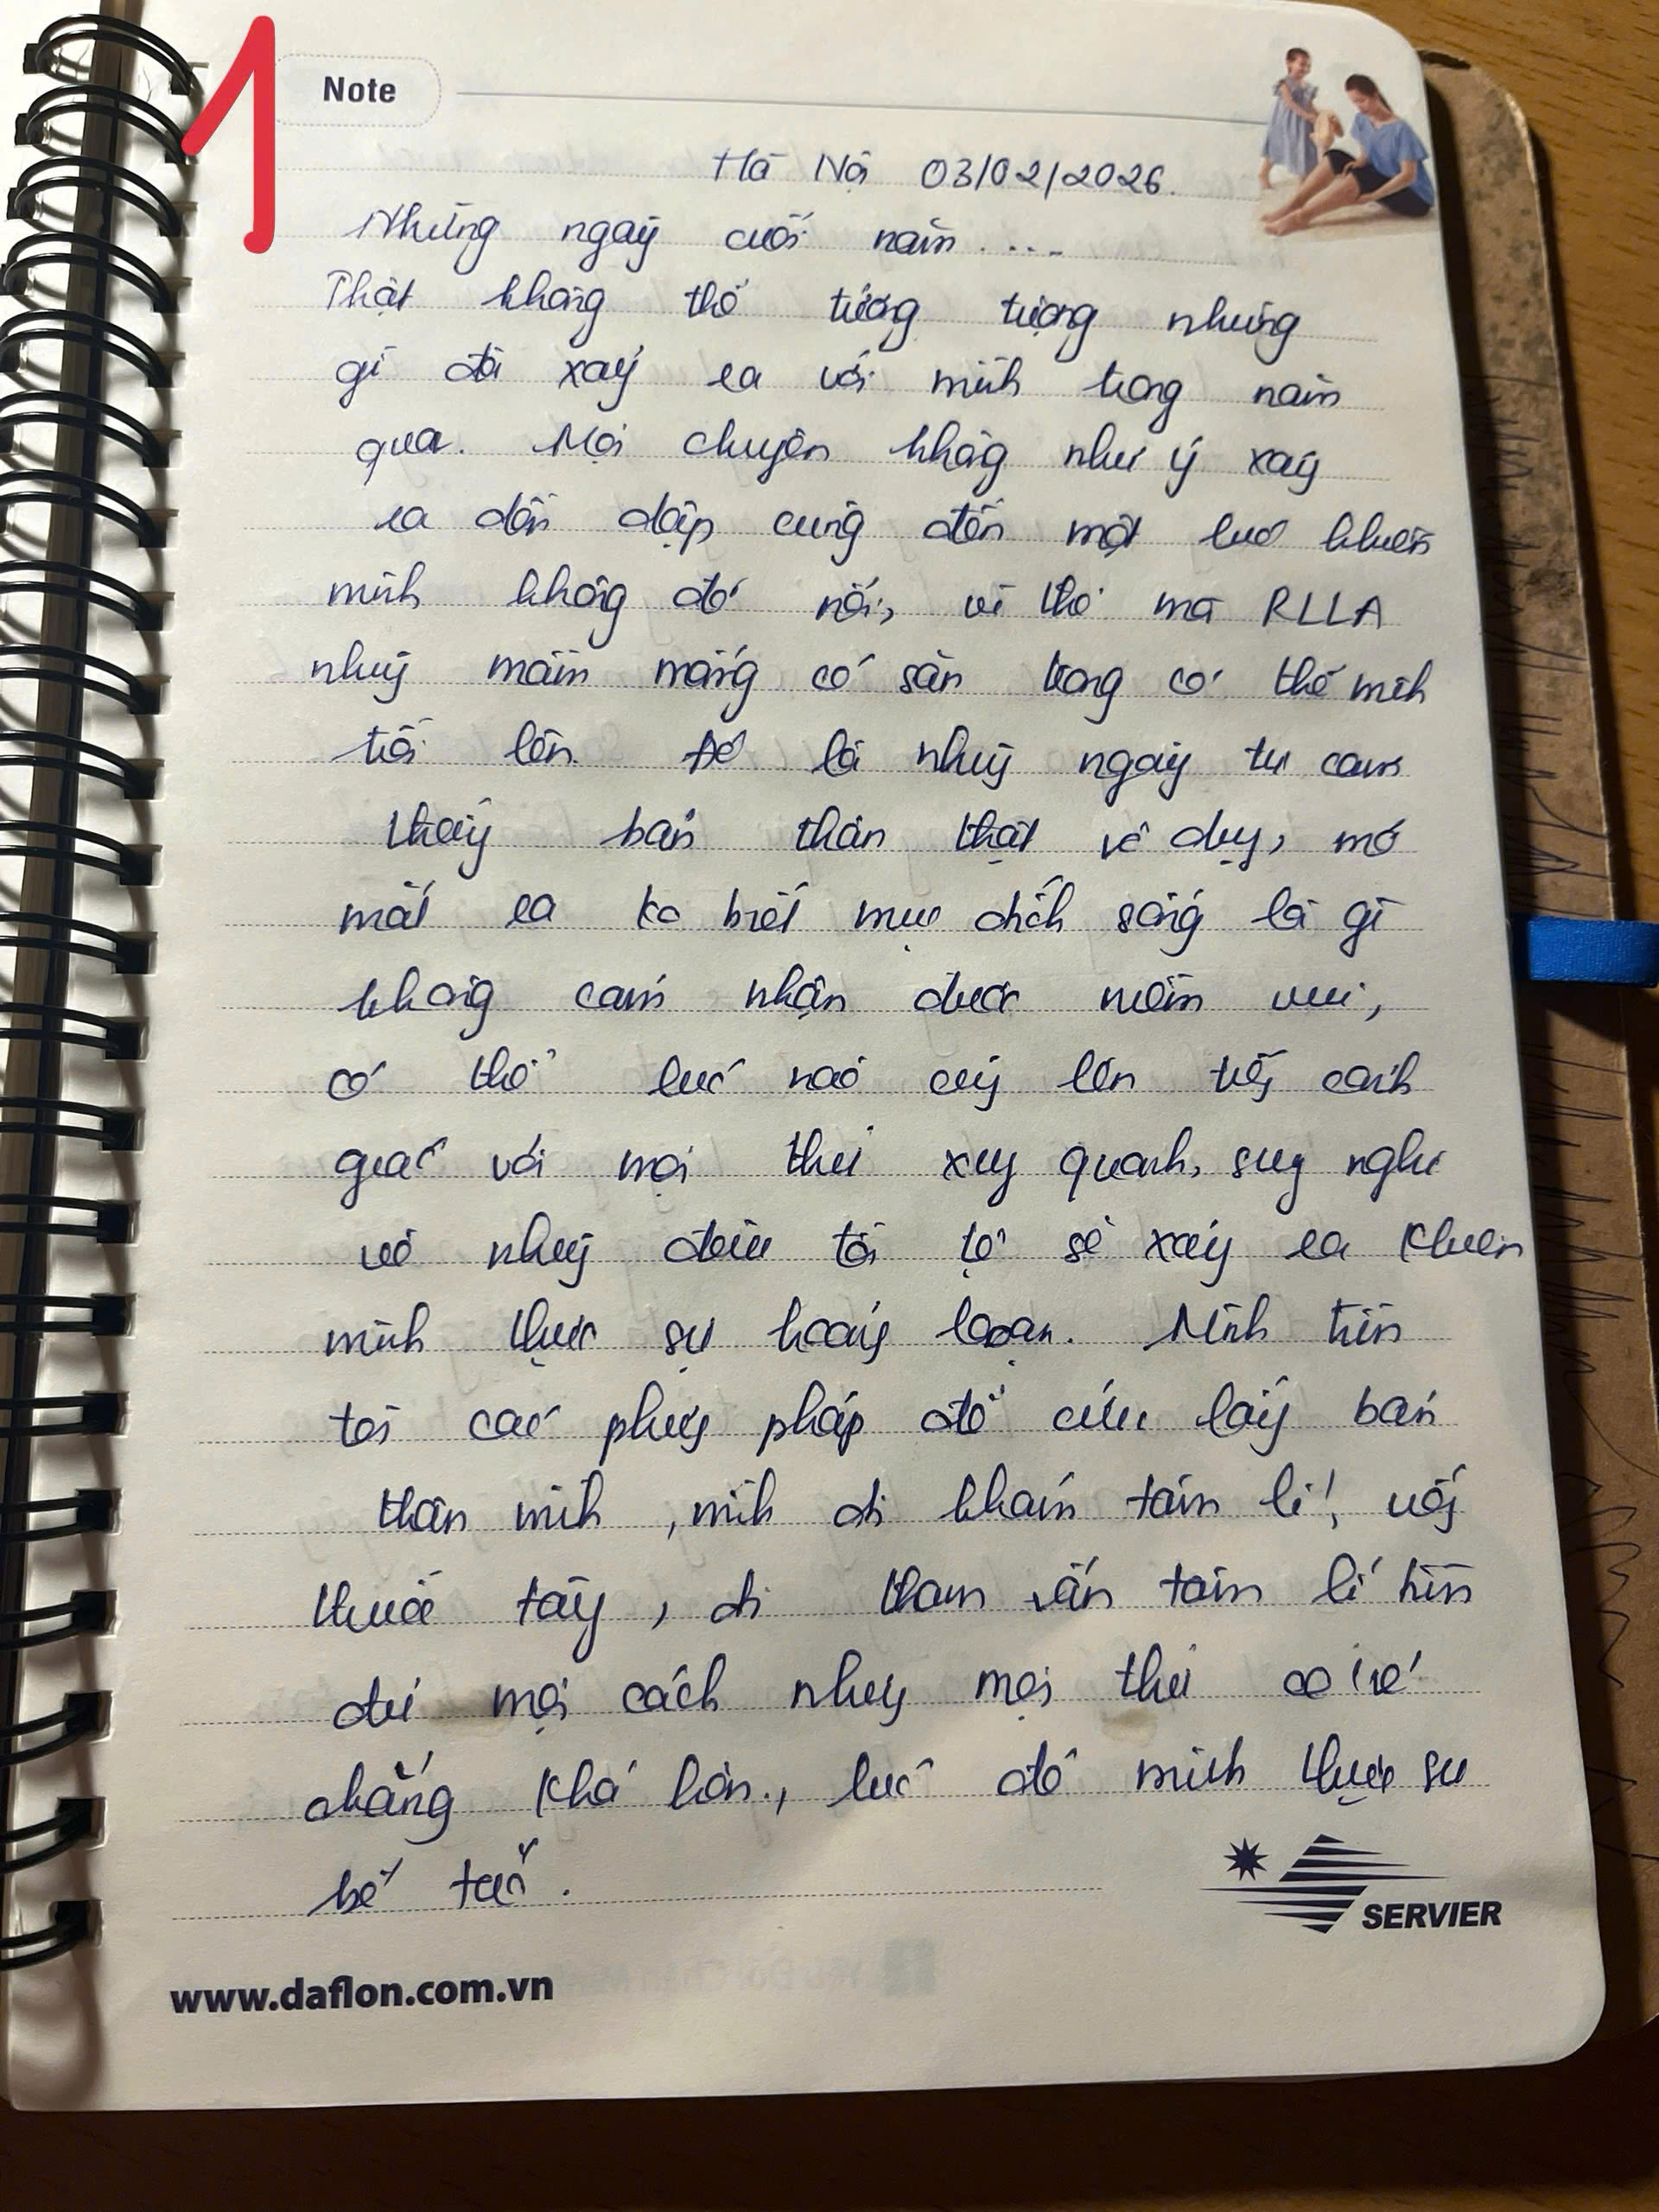 1
Note
Hà Nội 03/02/2026.
Những ngày cuối năm ....
Thật không thể tưởng tượng những
gì đã xảy ra với mình trong năm
qua. Mọi chuyện không như ý xảy
ra dồn dập cùng đến một lúc khiến
mình không đỡ nổi, vì thế mà RLLA
như mầm mống có sẵn trong cơ thể mình
trỗi lên. Đó là những ngày tự cảm
thấy bản thân thật vô dụng, mở
mắt ra ko biết mục đích sống là gì
không cảm nhận được niềm vui,
có thể lúc nào cũng lên cảnh
giác với mọi thứ xung quanh, suy nghĩ
về những điều tồi tệ sẽ xảy ra khiến
mình thực sự hoảng loạn. Mình tìm
tới các phương pháp để cứu lấy bản
thân mình, mình đi khám tâm lí, uống
thuốc tây, đi tham vấn tâm lí tìm
đủ mọi cách nhưng mọi thứ có vẻ
chẳng khá hơn., lúc đó mình thực sự
bế tắc.
SERVIER
www.daflon.com.vn